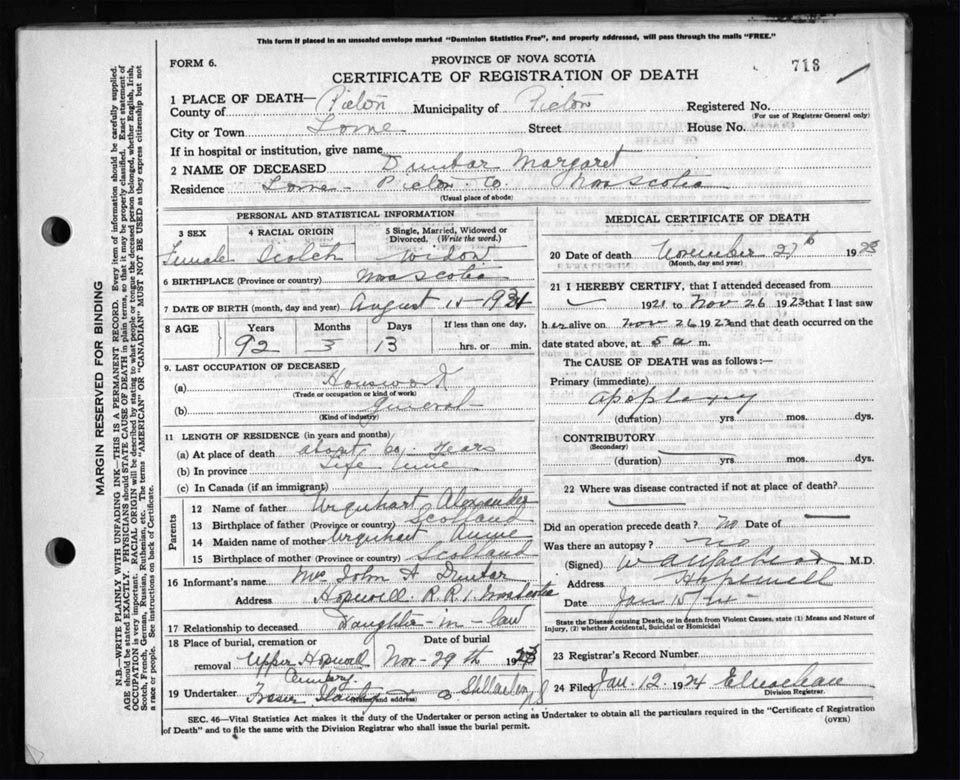 This form if placed in an unsealed envelope marked "Dominion Statistics Free", and properly addressed, will pass through the mails "FREE."
FORM 6.
PROVINCE OF NOVA SCOTIA
713
CERTIFICATE OF REGISTRATION OF DEATH
1 PLACE OF DEATH—
County of Pictou Municipality of Pictou Registered No.
(For use of Registrar General only)
City or Town Lorne Street House No.
If in hospital or institution, give name
2 NAME OF DECEASED Dunbar Margaret
Residence Lorne - Pictou Co. Nova Scotia
(Usual place of abode)
PERSONAL AND STATISTICAL INFORMATION
3 SEX 4 RACIAL ORIGIN 5 Single, Married, Widowed or Divorced. (Write the word.)
Female Scotch Widow
6 BIRTHPLACE (Province or country) Nova Scotia
7 DATE OF BIRTH (month, day and year) August
8 AGE Years Months Days If less than one day,
92 3 13 hrs. or min.
9. LAST OCCUPATION OF DECEASED
(a) Housework
(Trade or occupation or kind of work)
(b) General
(Kind of industry)
11 LENGTH OF RESIDENCE (in years and months)
(a) At place of death about 60 years
(b) In province Life time
(c) In Canada (if an immigrant)
Parents
12 Name of father Urquhart Alexander
13 Birthplace of father (Province or country) Scotland
14 Maiden name of mother Urquhart Annie
15 Birthplace of mother (Province or country) Scotland
16 Informant's name Mrs John A Dunbar
Address Hopewell R.R.1. Nova Scotia
17 Relationship to deceased Daughter-in-law
18 Place of burial, cremation or removal Date of burial
Upper Hopewell Cemetery Nov-29th 1923
19 Undertaker Fraser Co
(Name and address)
MEDICAL CERTIFICATE OF DEATH
20 Date of death November 27th 1923
(Month, day and year)
21 I HEREBY CERTIFY, that I attended deceased from
1921 to Nov 26 1923 that I last saw
her alive on Nov 26 1923 and that death occurred on the
date stated above, at 5 a m.
The CAUSE OF DEATH was as follows:—
Primary (immediate)
apoplexy
(duration) yrs mos. dys.
CONTRIBUTORY
(Secondary)
(duration) yrs mos. dys.
22 Where was disease contracted if not at place of death?
Did an operation precede death? No Date of
Was there an autopsy? no
(Signed) M.D.
Address Hopewell
Date Jan 15/24
State the Disease causing Death, or in death from Violent Causes, state (1) Means and Nature of Injury, (2) whether Accidental, Suicidal or Homicidal
23 Registrar's Record Number
24 Filed Jan. 12. 1924
Division Registrar.
SEC. 46—Vital Statistics Act makes it the duty of the Undertaker or person acting as Undertaker to obtain all the particulars required in the "Certificate of Registration
of Death" and to file the same with the Division Registrar who shall issue the burial permit.
(OVER)
MARGIN RESERVED FOR BINDING
N.B.—WRITE PLAINLY WITH UNFADING INK—THIS IS A PERMANENT RECORD. Every item of information should be carefully supplied.
AGE should be stated EXACTLY. PHYSICIANS should STATE CAUSE OF DEATH in plain terms, so that it may be properly classified. Exact statement of
OCCUPATION is very important. RACIAL ORIGIN will be described by stating to what people or tongue the deceased person belonged, whether English, Irish,
Scotch, French, German, Russian, Ruthenian, etc. The terms "AMERICAN" OR "CANADIAN" MUST NOT BE USED as they express citizenship but not
a race or people. See instructions on back of Certificate.